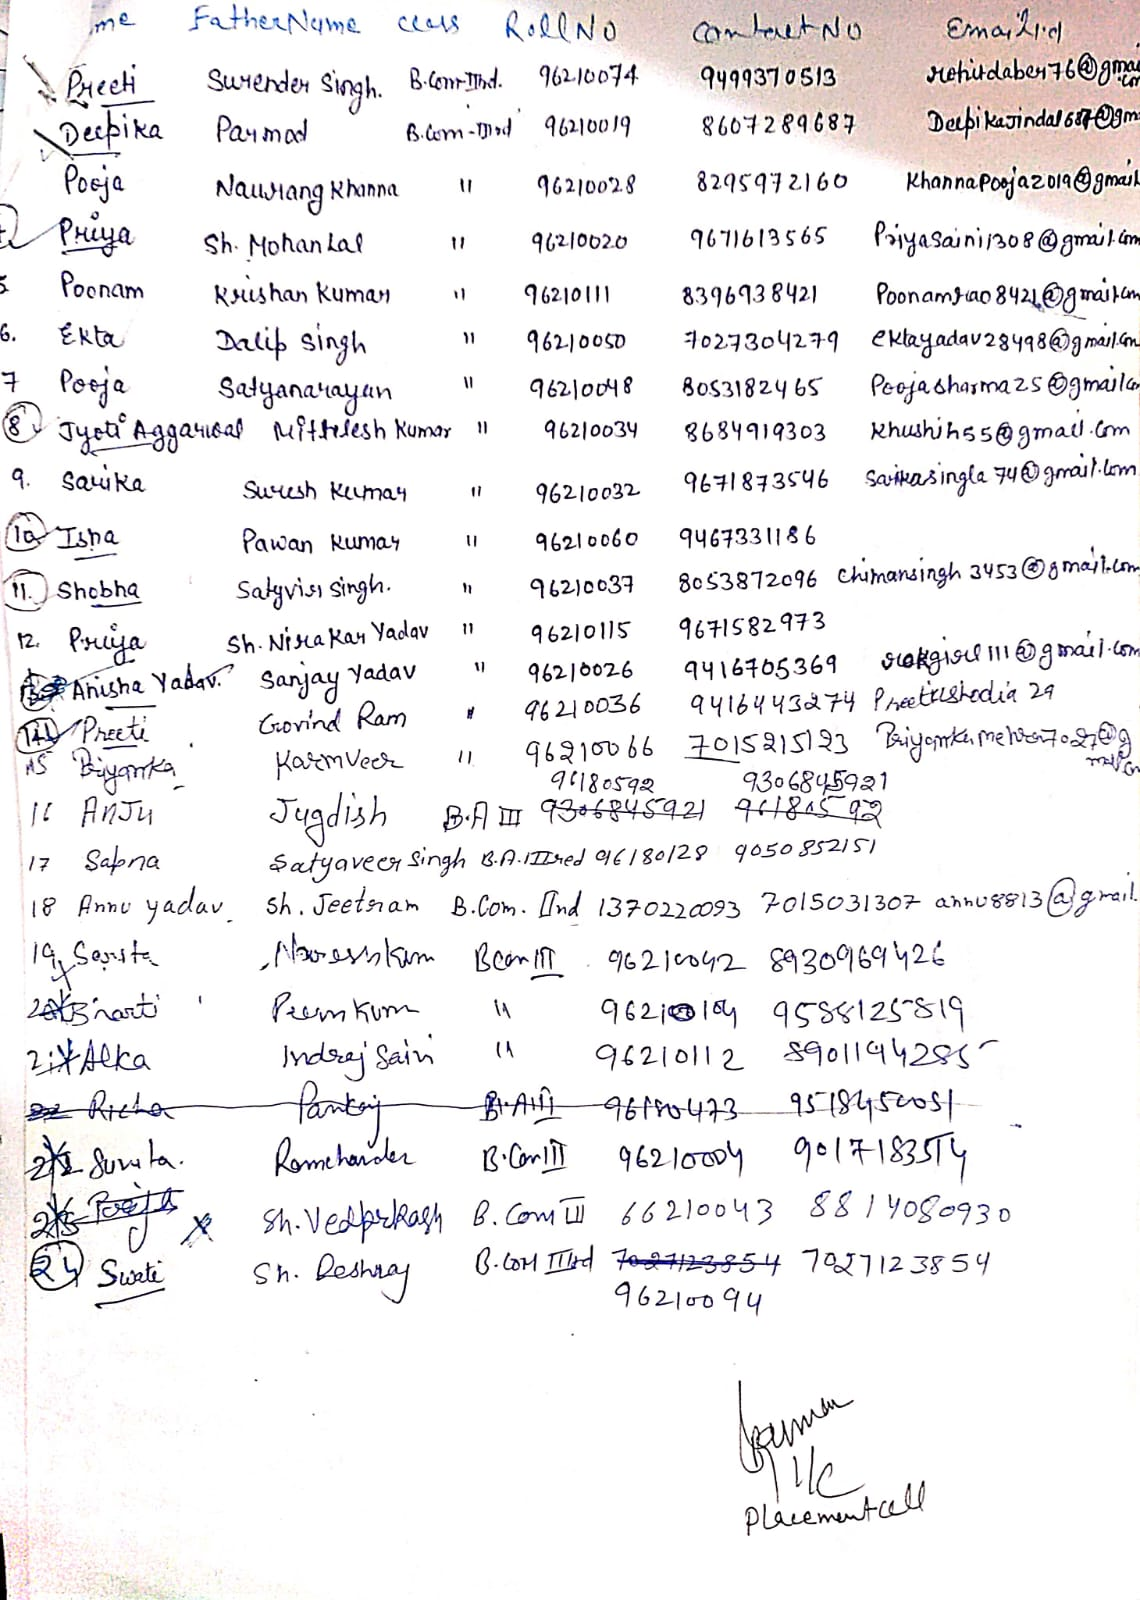 me Father Name class Roll No Contact No Email id
Preeti Surender Singh. B.Com IInd. 96210074 9499370513 rohitdaber76@gmail.com
Deepika Parmod B.Com-IIIrd 96210019 8607289687 Deepikajindal687@gm
Pooja Naurang Khanna " 96210028 8295972160 KhannaPooja2019@gmail
Priya Sh. Mohan Lal " 96210020 9671613565 Priyasaini1308@gmail.com
5 Poonam Krishan Kumar " 96210111 8396938421 Poonamrao8421@gmail.com
6. Ekta Dalip Singh " 96210050 7027304279 ektayadav28498@gmail.com
7 Pooja Satyanarayan " 96210048 8053182465 Poojasharma25@gmailco
8 Jyoti Aggarwal Mithlesh Kumar " 96210034 8684919303 khushih55@gmail.com
9. Sarika Suresh Kumar " 96210032 9671873546 Sarikasingla74@gmail.com
10 Isha Pawan Kumar " 96210060 9467331186
11. Shobha Satyvir Singh. " 96210037 8053872096 Chimansingh3453@gmail.com
12. Priya Sh. Nirakar Yadav " 96210115 9671582973
Anisha Yadav. Sanjay Yadav " 96210026 9416705369 @gmail.com
14 Preeti Govind Ram " 96210036 9416443274 29
15 Priyanka Karmveer " 96210066 7015215123 Priyankamehra7027@g
mail.com
96180592 9306845921
16 ANJU Jugdish B.A III 9306845921 96180592
17 Sapna Satyaveer Singh B.A.IIIred 96180128 9050852151
18 Annu yadav. Sh. Jeetram B.Com. IInd 1370220093 7015031307 annu8813@gmail.
19 Sarita Naresh kum BCom III 96210042 8930969426
20 Bharti Prem kum " 96210104 9588125819
21 Alka Indraj Saini " 96210112 8901194285
22 Richa Pankaj B.A III 96180473 9518450051
22 Sunita. Ramchander B.Com III 96210004 9017183514
23 Pooja Sh. Vedprkash B. Com III 66210043 8814080930
24 Swati Sh. Deshraj B.COM IIIrd 7027123854 7027123854
96210094
Kumar
I/C
Placement cell